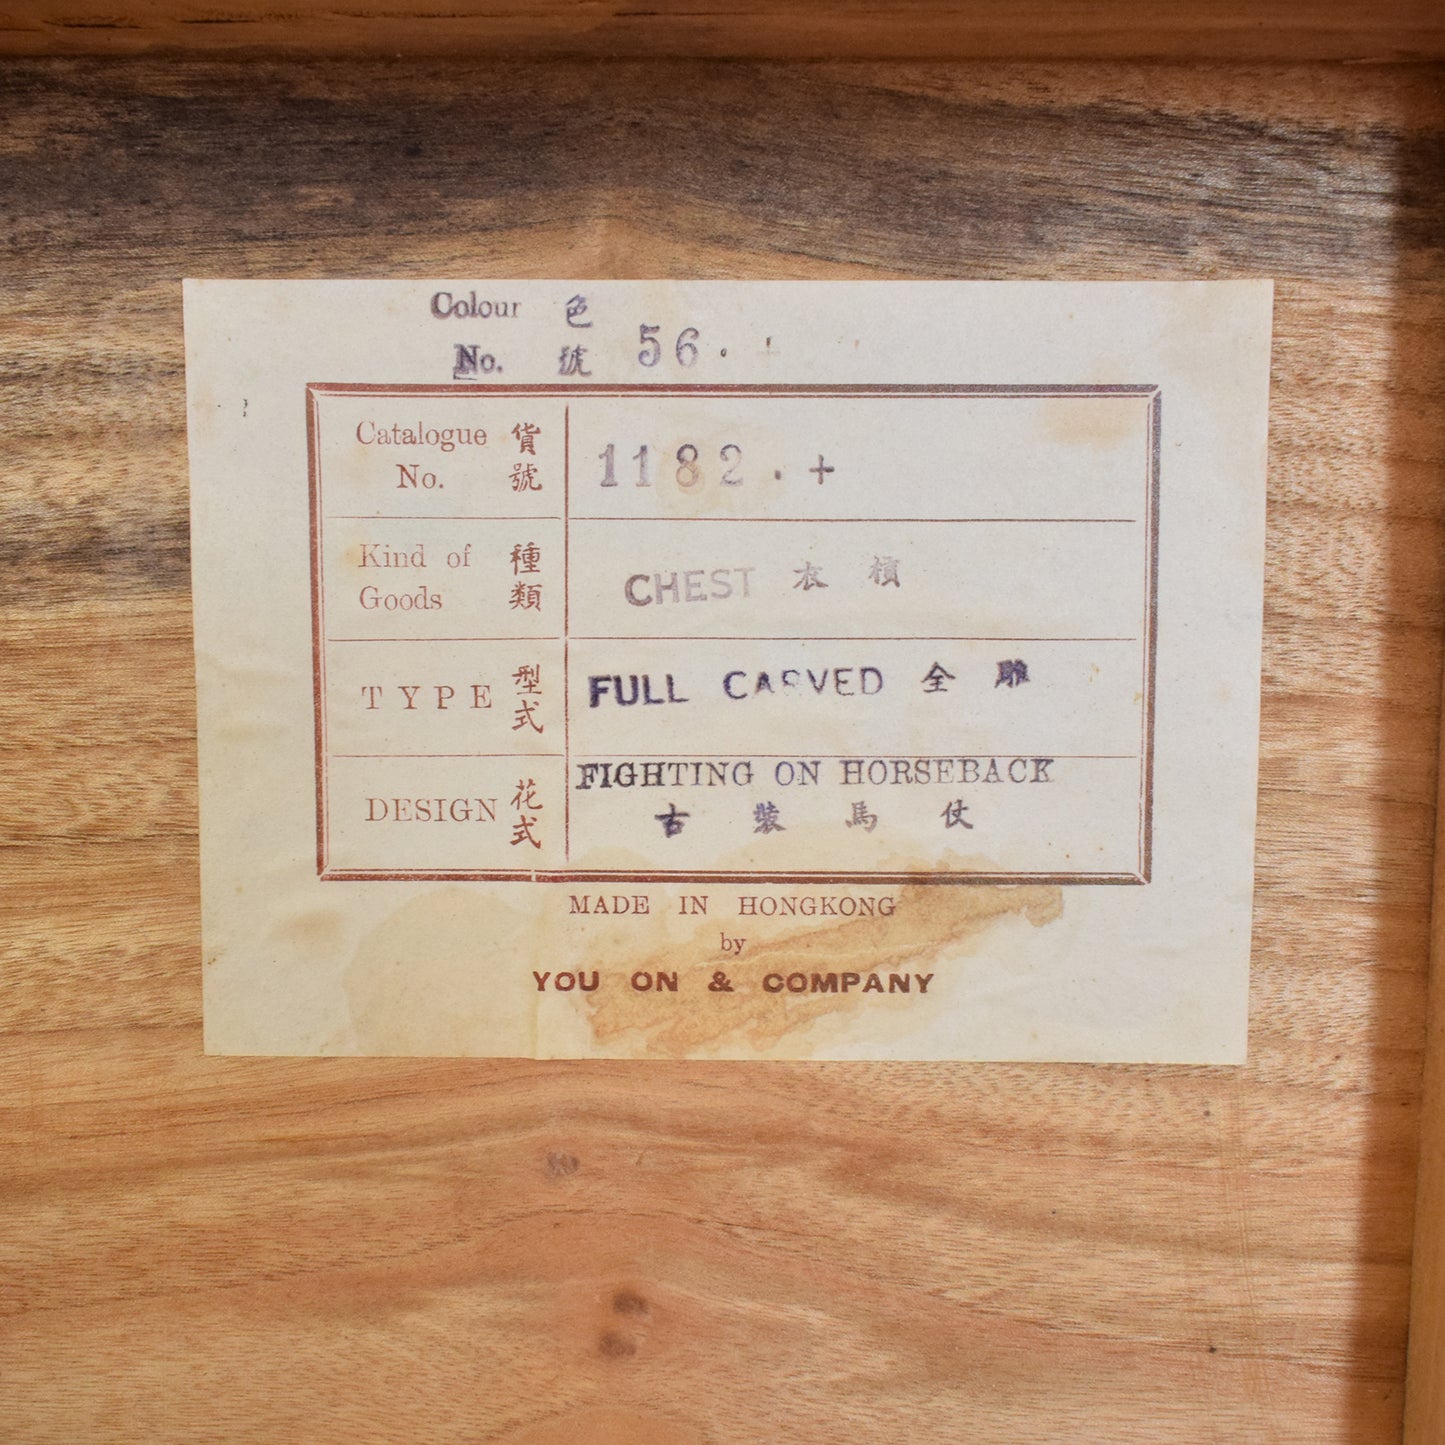 Colour 色
No. 號 56.
Catalogue 貨
No. 號
1182.+
Kind of 種
Goods 類
CHEST 衣 横
TYPE 型式
FULL CARVED 全 雕
DESIGN 花式
FIGHTING ON HORSEBACK
古 裝 馬 仗
MADE IN HONGKONG
by
YOU ON & COMPANY